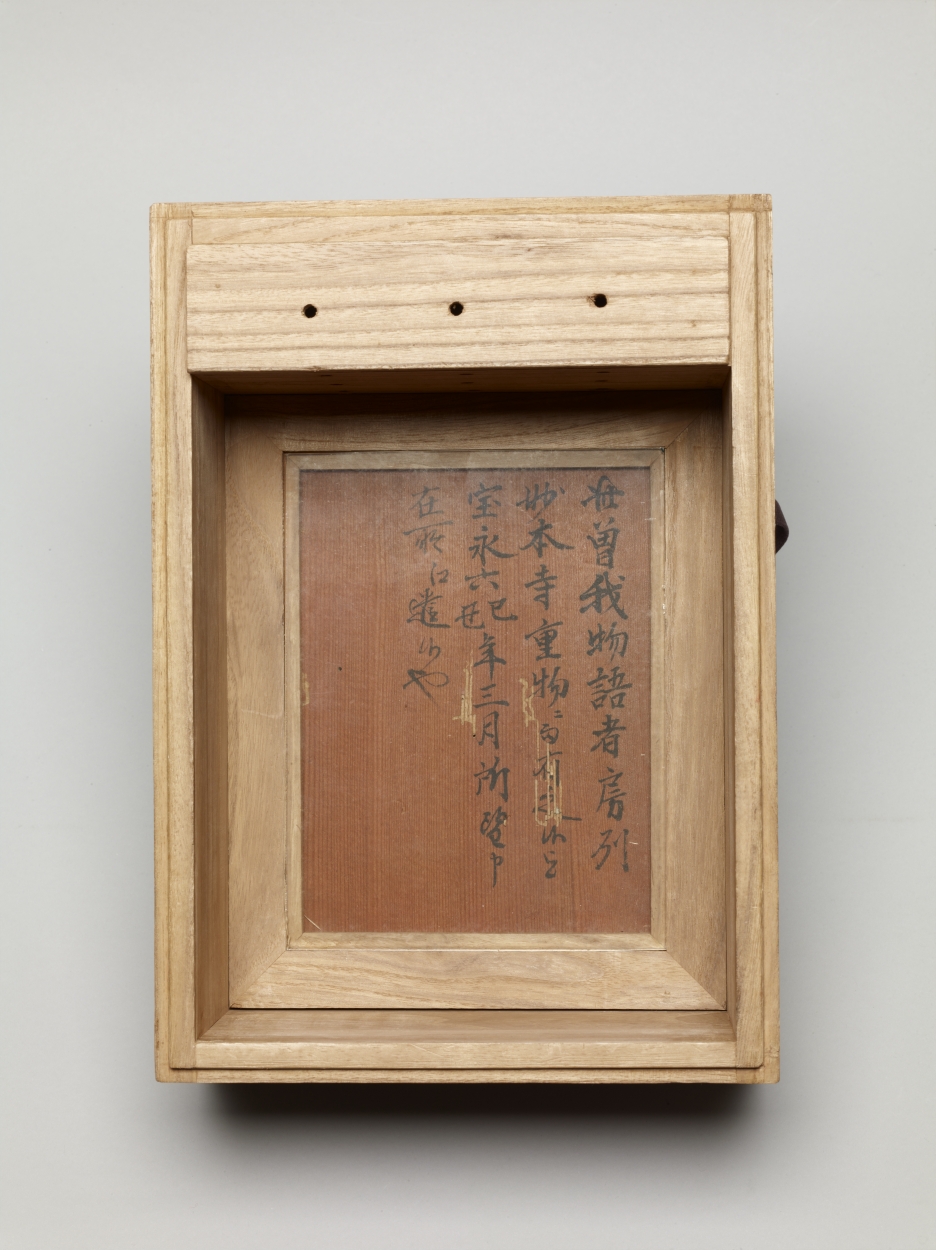 此曽我物語者房列
妙本寺重物ニ而有之候を
宝永六己丑年三月
在所江遣候也